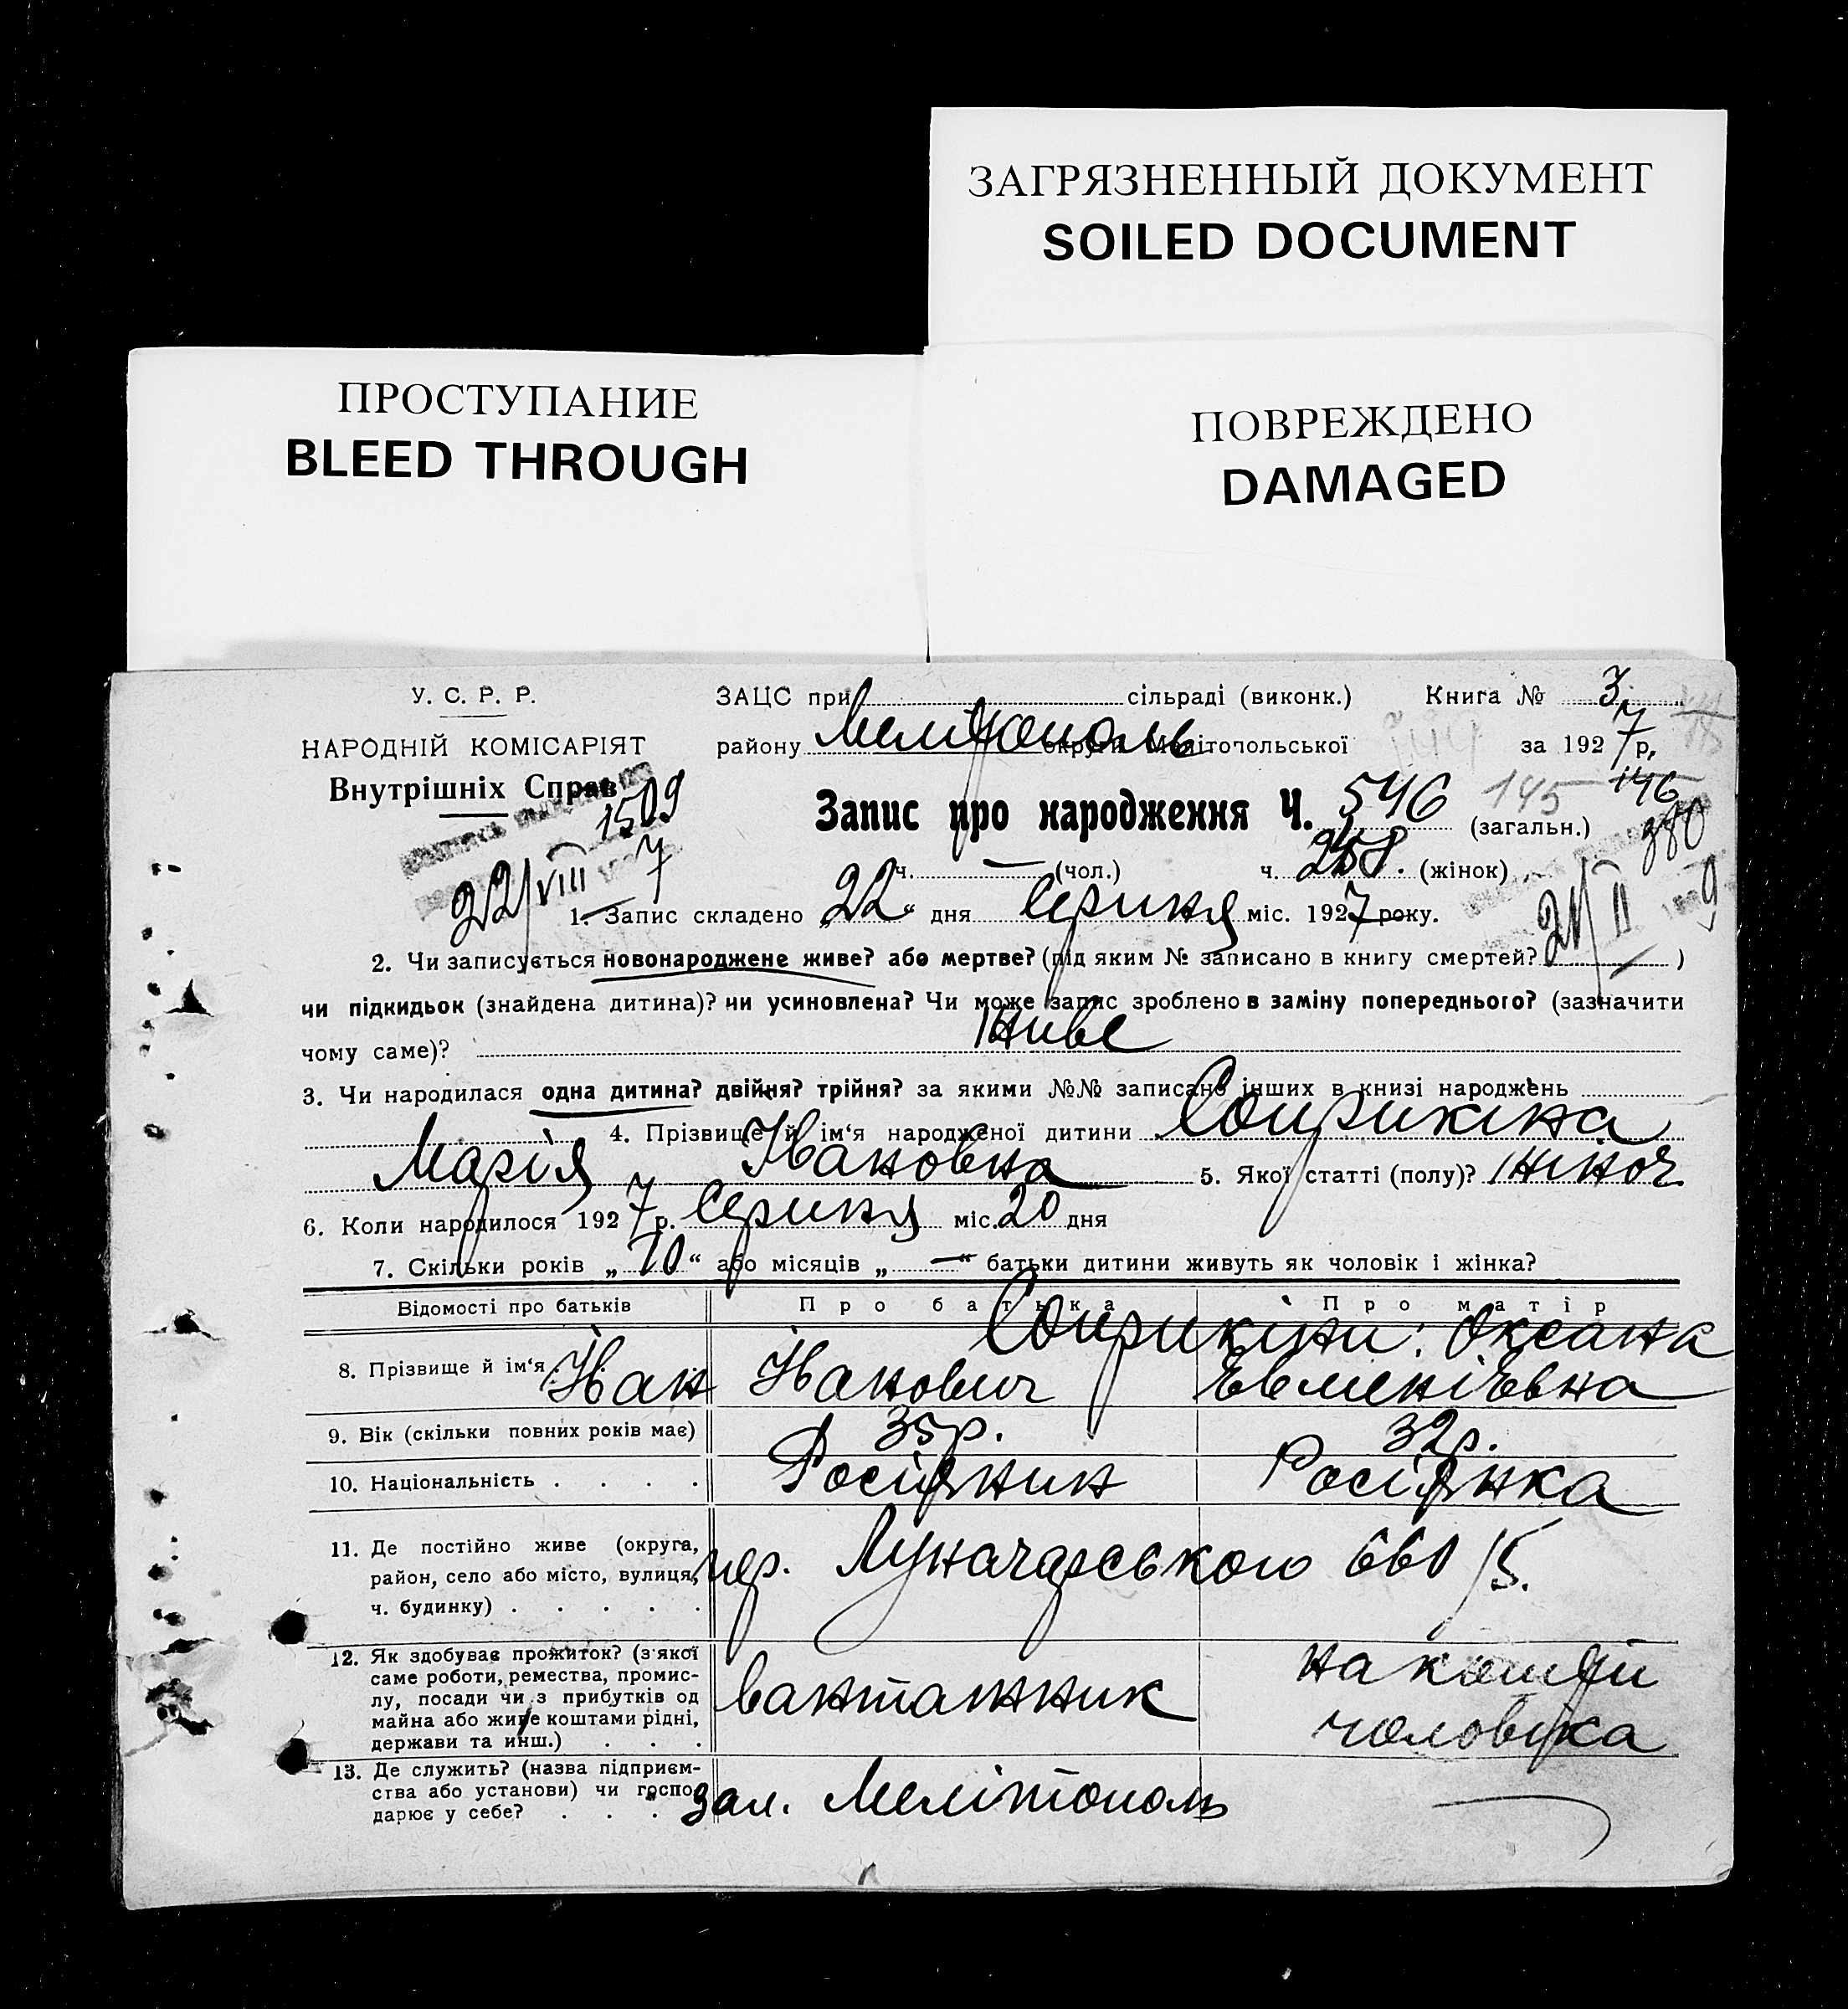 ЗАГРЯЗНЕННЫЙ ДОКУМЕНТ
SOILED DOCUMENT
ПРОСТУПАНИЕ
BLEED THROUGH
ПОВРЕЖДЕНО
DAMAGED
У. С. Р. Р.
НАРОДНІЙ КОМІСАРІЯТ
Внутрішніх Справ
1509
22/VIII 7
ЗАЦС при сільраді (виконк.) Книга № 3
району Мелітополь округи Мелітопольської за 1927 р.
Запис про народження Ч. 546 (загальн.) 145 146
380
ч. — (чол.) ч. 258. (жінок)
21/II
1. Запис складено „22“ дня Серпня міс. 1927 року.
2. Чи записується новонароджене живе? або мертве? (під яким № записано в книгу смертей? )
чи підкидьок (знайдена дитина)? чи усиновлена? Чи може запис зроблено в заміну попереднього? (зазначити
чому саме)? Живе
3. Чи народилася одна дитина? двійня? трійня? за якими №№ записано інших в книзі народжень
4. Прізвище й ім'я народженої дитини Соприкіна
Марія Івановна 5. Якої статті (полу)? жіноч
6. Коли народилося 1927 р. Серпня міс. 20 дня
7. Скільки років „10“ або місяців „—“ батьки дитини живуть як чоловік і жінка?
Відомості про батьків Про батька Про матір
8. Прізвище й ім'я. Соприкіни: Оксана
Іван Іванович Евменіевна
9. Вік (скільки повних років має) 35р. 32р.
10. Національність . . . . Росіянин Росіянка
11. Де постійно живе (округа,
район, село або місто, вулиця,
ч. будинку) . . . . .
пер. Луначарського 660/5.
12. Як здобуває прожиток? (з якої
саме роботи, ремества, промис-
лу, посади чи з прибутків од
майна або живе коштами рідні,
держави та инш.) . . .
вантажник
на кошти
чоловіка
13. Де служить? (назва підприєм-
ства або установи) чи госпо-
дарює у себе? . . . .
зал. Мелітополь